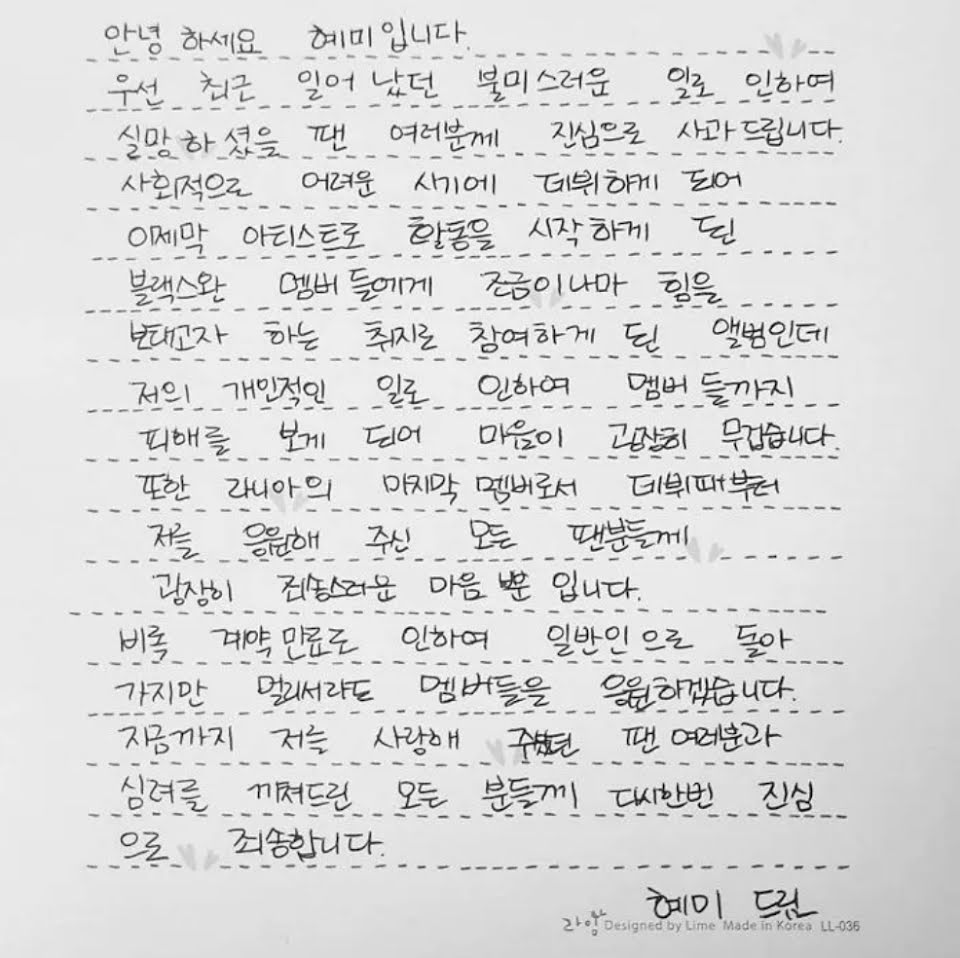 안녕 하세요 혜미입니다.
우선 최근 일어 났던 불미스러운 일로 인하여
실망하 셨을 팬 여러분께 진심으로 사과드립니다.
사회적으로 어려운 시기에 데뷔하게 되어
이제막 아티스트로 활동을 시작하게 된
블랙스완 멤버들에게 조금이나마 힘을
보태고자 하는 취지로 참여하게 된 앨범인데
저의 개인적인 일로 인하여 멤버들까지
피해를 보게 되어 마음이 굉장히 무겁습니다.
또한 라니아의 마지막 멤버로서 데뷔때부터
저를 응원해 주신 모든 팬분들께
굉장히 죄송스러운 마음 뿐 입니다.
비록 계약만료로 인하여 일반인으로 돌아
가지만 멀리서라도 멤버들을 응원하겠습니다.
지금까지 저를 사랑해 주셨던 팬 여러분과
심려를 끼쳐드린 모든 분들께 다시한번 진심
으로 죄송합니다.
혜미 드림
라임 Designed by Lime Made in Korea LL-036